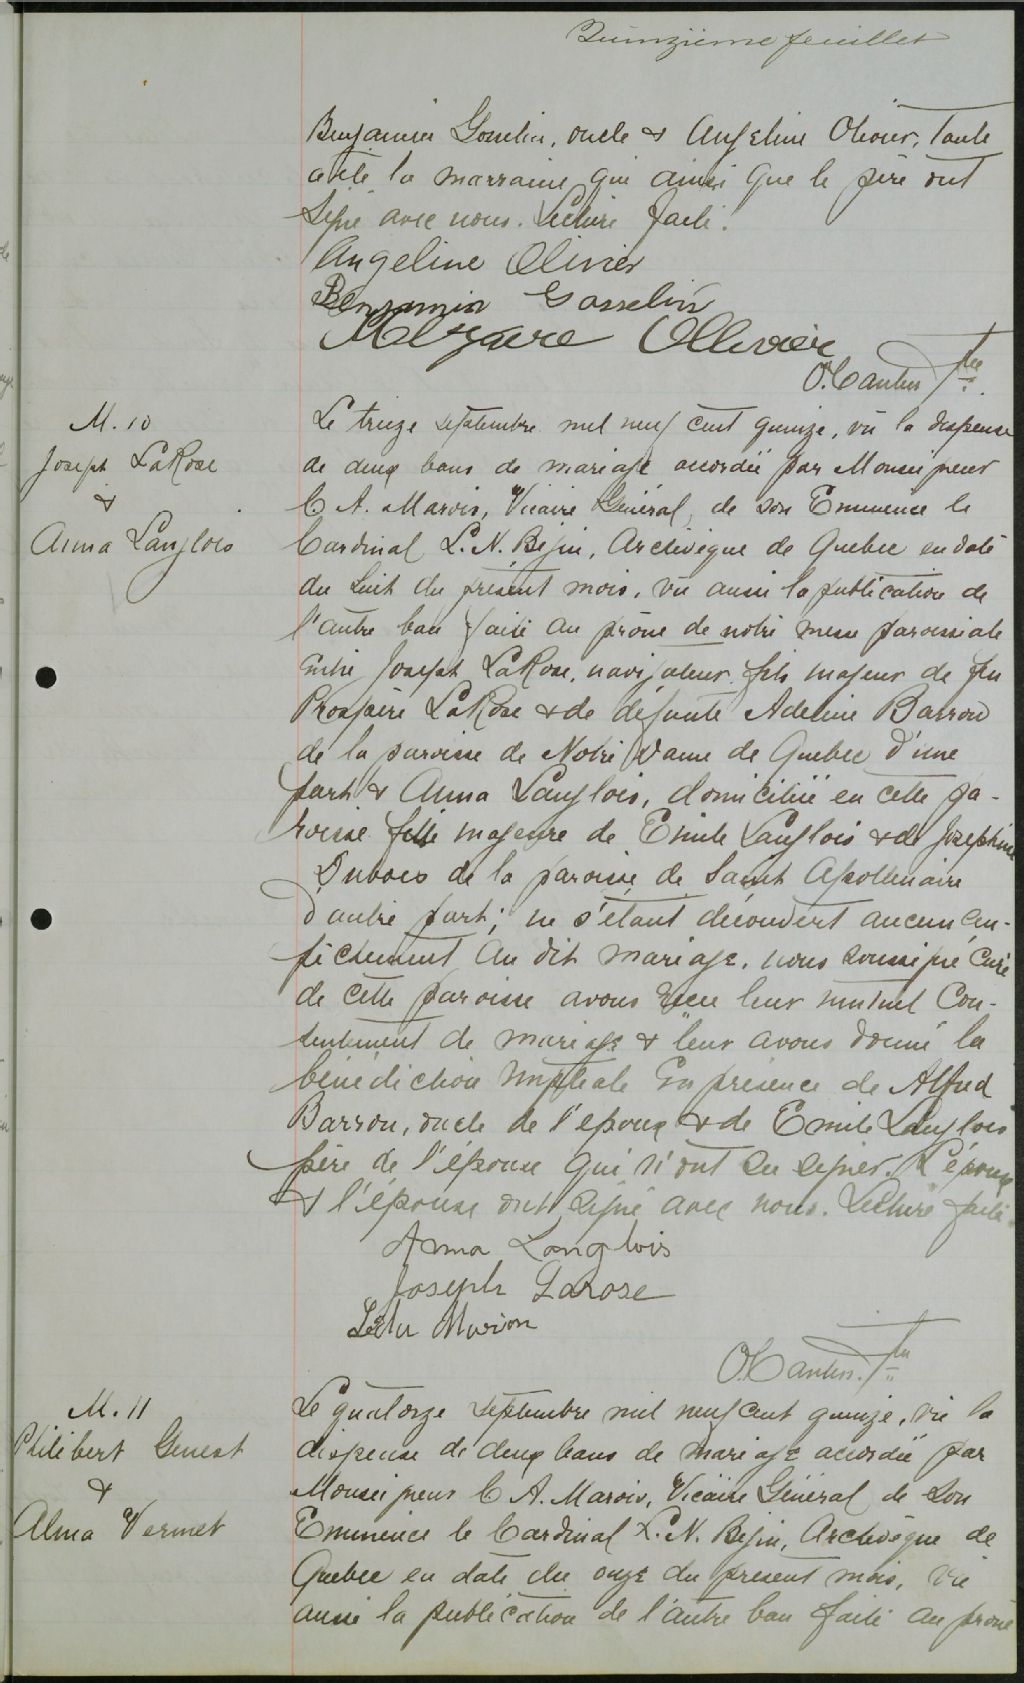 Quinzième feuillet
Benjamin Gosselin, oncle & Angeline Olivier, tante
a été la marraine qui ainsi que le père ont
signé avec nous. Lecture faite.
Angeline Olivier
Benjamin Gosselin
Ollivier
O. Cantin Ptre
M. 10
Joseph LaRose
&
Anna Langlois
Le treize septembre mil neuf cent quinze, vu la dispense
de deux bans de mariage accordée par Monseigneur
C. A. Marois, Vicaire Général, de son Eminence le
Cardinal L. N. Bégin, Archevêque de Quebec en date
du huit du présent mois, vu aussi la publication de
l'autre ban faite au prône de notre messe paroissiale
entre Joseph LaRose, navigateur, fils majeur de feu
Prospère LaRose & de défunte Adeline Barron
de la paroisse de Notre Dame de Quebec d'une
part & Anna Langlois, domiciliée en cette pa-
roisse fille majeure de Emile Langlois & de Josephine
Dubois de la paroisse de Saint Apollinaire
d'autre part; ne s'étant découvert aucun em-
pêchement au dit mariage, nous soussigné Curé
de cette paroisse avons reçu leur mutuel con-
sentement de mariage & leur avons donné la
bénédiction nuptiale en présence de Alfred
Barron, oncle de l'époux & de Emile Langlois
père de l'épouse qui n'ont su signer. L'époux
& l'épouse ont signé avec nous. Lecture faite.
Anna Langlois
Joseph Larose
Marion
O. Cantin Ptre
M. 11
Philibert Genest
&
Alma Vermet
Le quatorze septembre mil neuf cent quinze, vu la
dispense de deux bans de mariage accordée par
Monseigneur C. A. Marois, Vicaire Général de Son
Eminence le Cardinal L. N. Bégin, Archevêque de
Quebec en date du onze du present mois, vu
aussi la publication de l'autre ban faite au prône